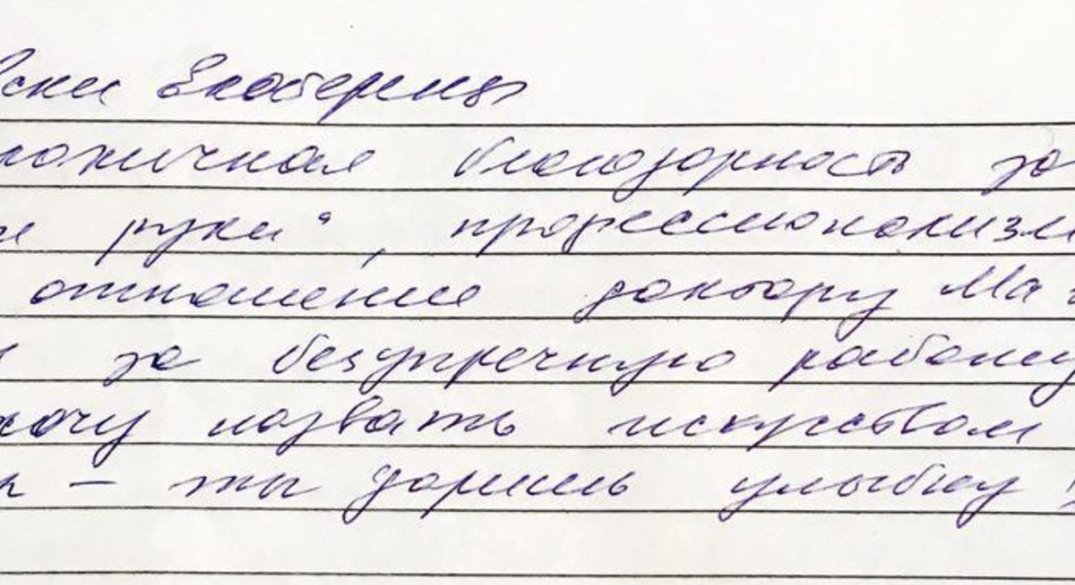 ски Екатерины
благодарность за
руки", профессионализм
отношение доктору Ма
за безупречную работу
хочу назвать искусством
– ты даришь улыбку!